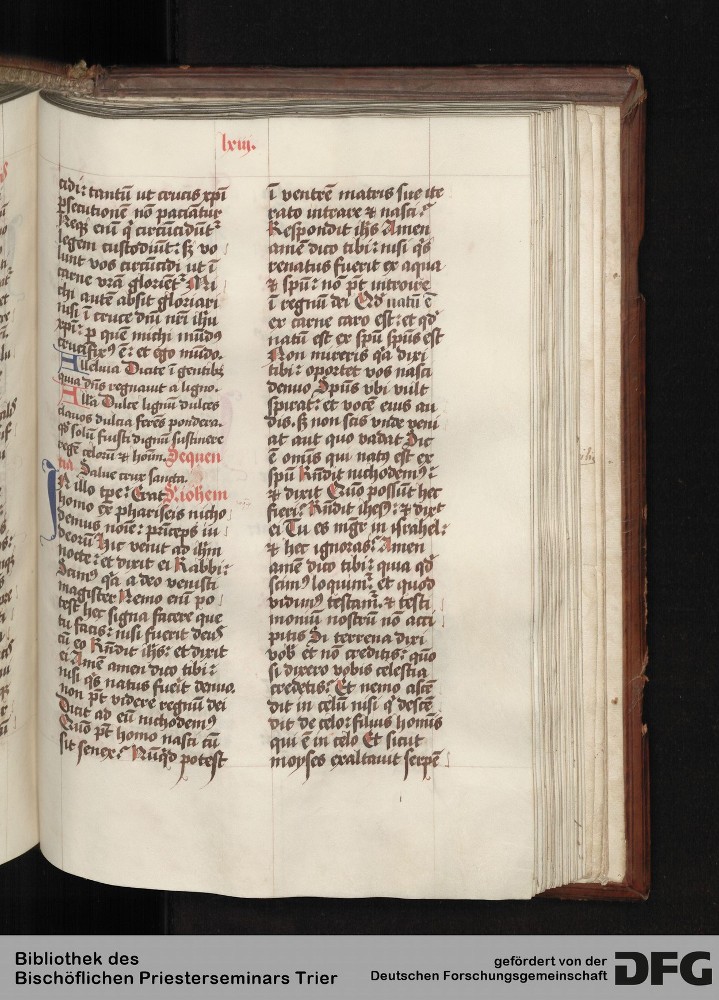 lxiij.
cidi: tantū ut crucis xpī
psecutionē nō paciātur
Neqȝ enī q̇ circūcidūt᷑
legem custodiūt: sȝ vo
lunt vos circūcidi ut ī
carne vrā gloriēt᷑ Mi
chi autē absit gloriari
nisi ī cruce dnī nrī ihū
xpī: p quē michi mūdꝰ
crucifixꝰ ē: et ego mūdo.
Alleluia Dicite ī gentibȝ
quia dn̄s regnauit a ligno.
Alla Dulce lignū dulces
clauos dulcia ferēs pondera.
q̄ solū fuisti dignū sustinere
regē celorū ⁊ hoīm. Sequen
tia Salue crux sancta.
In illo tpe: Erat S. iohem
homo ex phariseis nicho
demus noīe: prīceps iu
deorū Hic venit ad ihm
nocte: et dixit ei Rabbi:
Scimꝰ q̇a a deo venisti
magister Nemo enī po
test hec signa facere que
tu facis: nisi fuerit deus
cū eo Rn̄dit ihs: et dixit
ei Amē amen dico tibi:
nisi q̇s natus fuerit denuo.
non pt̄ videre regnū dei
Dicit ad eū nichodemꝰ
Quō pt̄ homo nasci cū
sit senex: Nūq̇d potest
ī ventrē matris sue ite
rato introire ⁊ nasci:
Respondit ihs Amen
amē dico tibi: nisi q̇s
renatus fuerit ex aqua
⁊ spū: nō pt̄ introire
ī regnū dei Qd̓ natū ē
ex carne caro est: et qd̓
natū est ex spū spūs est
Non mireris q̇a dixi
tibi: oportet vos nasci
denuo Spūs vbi vult
spirat: et vocē eius au
dis. sȝ non scis vnde veni
at aut quo vadat Sic
ē omīs qui natꝰ est ex
spū Rn̄dit nichodemꝰ:
⁊ dixit Quō possūt hec
fieri: Rn̄dit ihesꝰ: ⁊ dixt
ei Tu es mgr̄ in israhel:
⁊ hec ignoras: Amen
amē dico tibi: quia qd̓
scimꝰ loquim᷑: et quod
vidimꝰ testam᷑. ⁊ testi
moniū nostrū nō acci
pitis Si terrena dixi
vob̄ et nō creditis: quō
si dixero vobis celestia
credetis: Et nemo ascē
dit in celū nisi q̇ descē
dit de celo: filius homīs
qui ē in celo Et sicut
moyses exaltauit serpē
Bibliothek des
Bischöflichen Priesterseminars Trier
gefördert von der
Deutschen Forschungsgemeinschaft
DFG